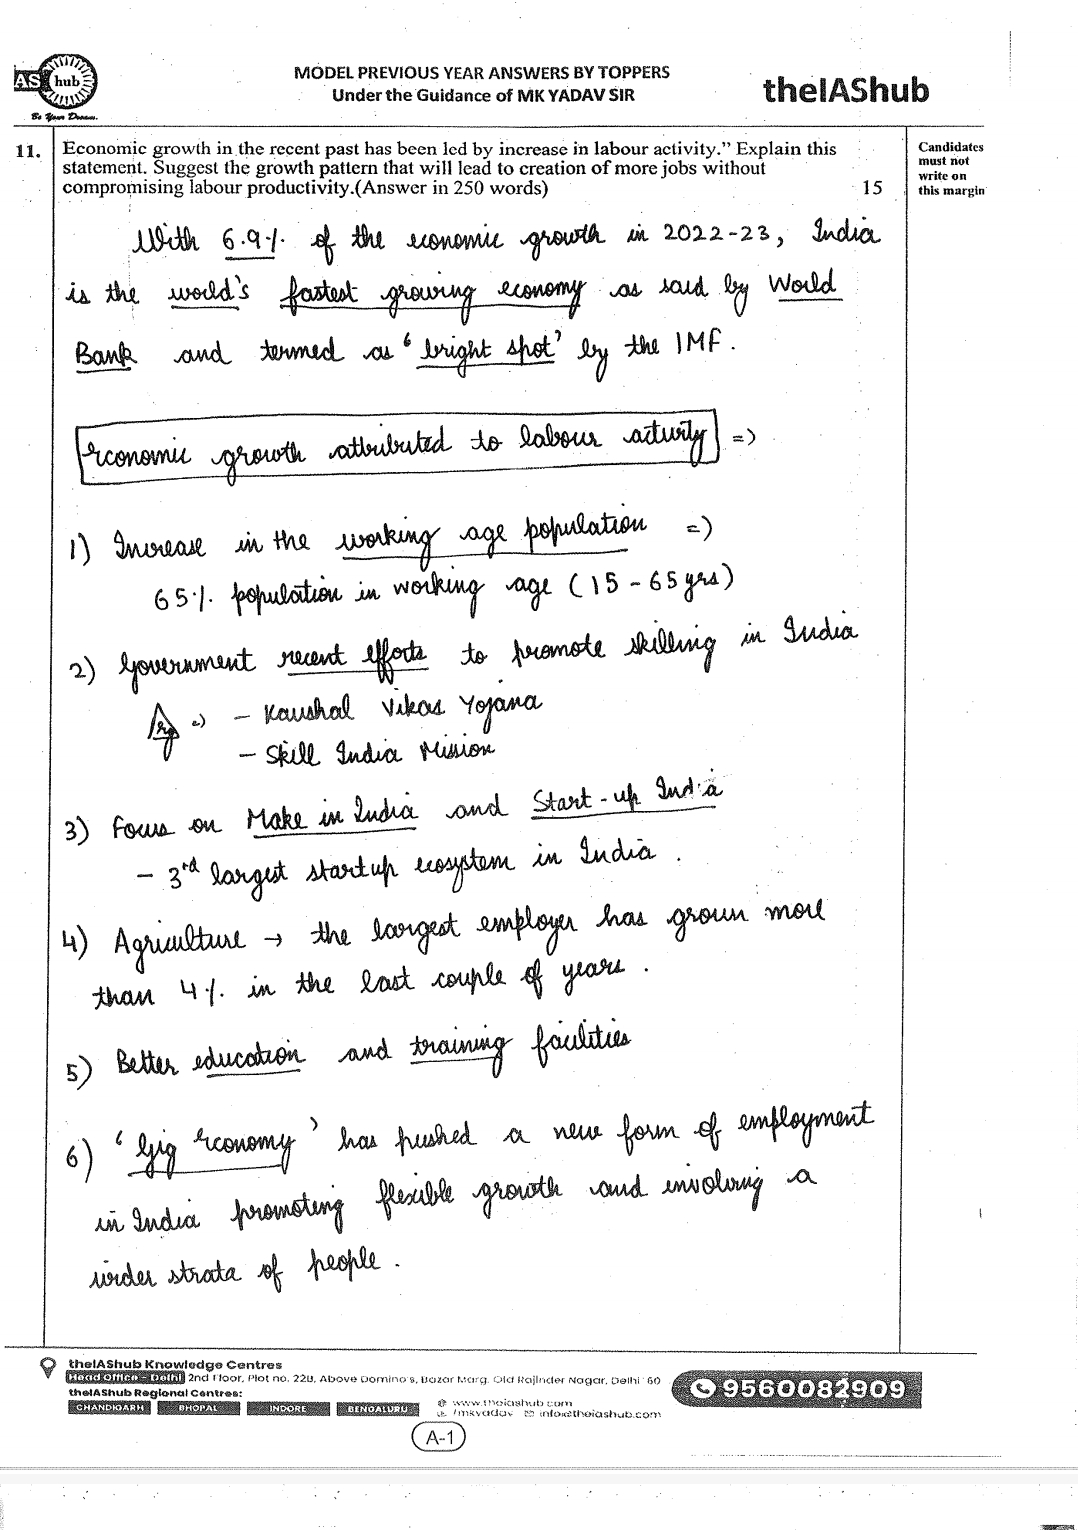 AS hub
Be Your Dream.
MODEL PREVIOUS YEAR ANSWERS BY TOPPERS
Under the Guidance of MK YADAV SIR
theIAShub
11. Economic growth in the recent past has been led by increase in labour activity." Explain this
statement. Suggest the growth pattern that will lead to creation of more jobs without
compromising labour productivity.(Answer in 250 words) 15
Candidates
must not
write on
this margin
With 6.9% of the economic growth in 2022-23, India
is the world's fastest growing economy as said by World
Bank and termed as 'bright spot' by the IMF.
Economic growth attributed to labour activity =>
1) Increase in the working age population =>
65% population in working age (15-65 yrs)
2) Government recent efforts to promote skilling in India
Eg => - Kaushal Vikas Yojana
- Skill India Mission
3) Focus on Make in India and Start-up India
- 3rd largest startup ecosystem in India.
4) Agriculture → the largest employer has grown more
than 4% in the last couple of years.
5) Better education and training facilities
6) 'Gig Economy' has pushed a new form of employment
in India promoting flexible growth and involving a
wider strata of people.
theIAShub Knowledge Centres
Head Office - Delhi 2nd Floor, Plot no. 22B, Above Domino's, Bazar Marg, Old Rajinder Nagar, Delhi 60
theIAShub Regional Centres:
CHANDIGARH BHOPAL INDORE BENGALURU
www.theiashub.com
/mkyadav info@theiashub.com
9560082909
A-1